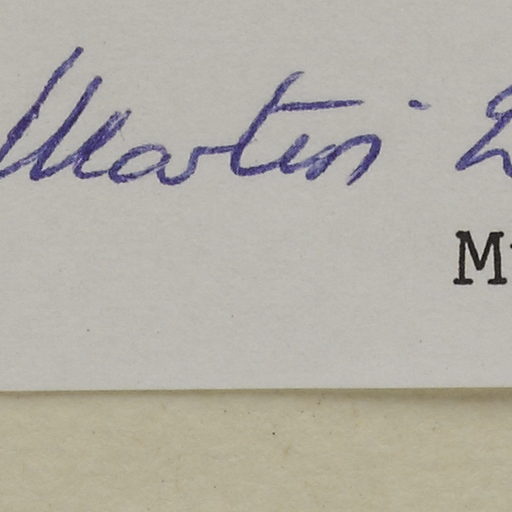 Martin
M